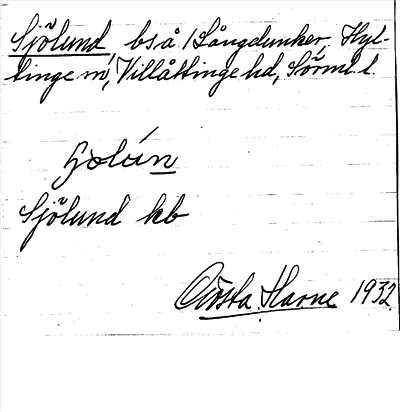 Sjölund, bs å Långdunker, Hyl-
tinge sn, Villåttinge hd, Sörml. l.
Sjölund kb
Gösta Harne 1932.